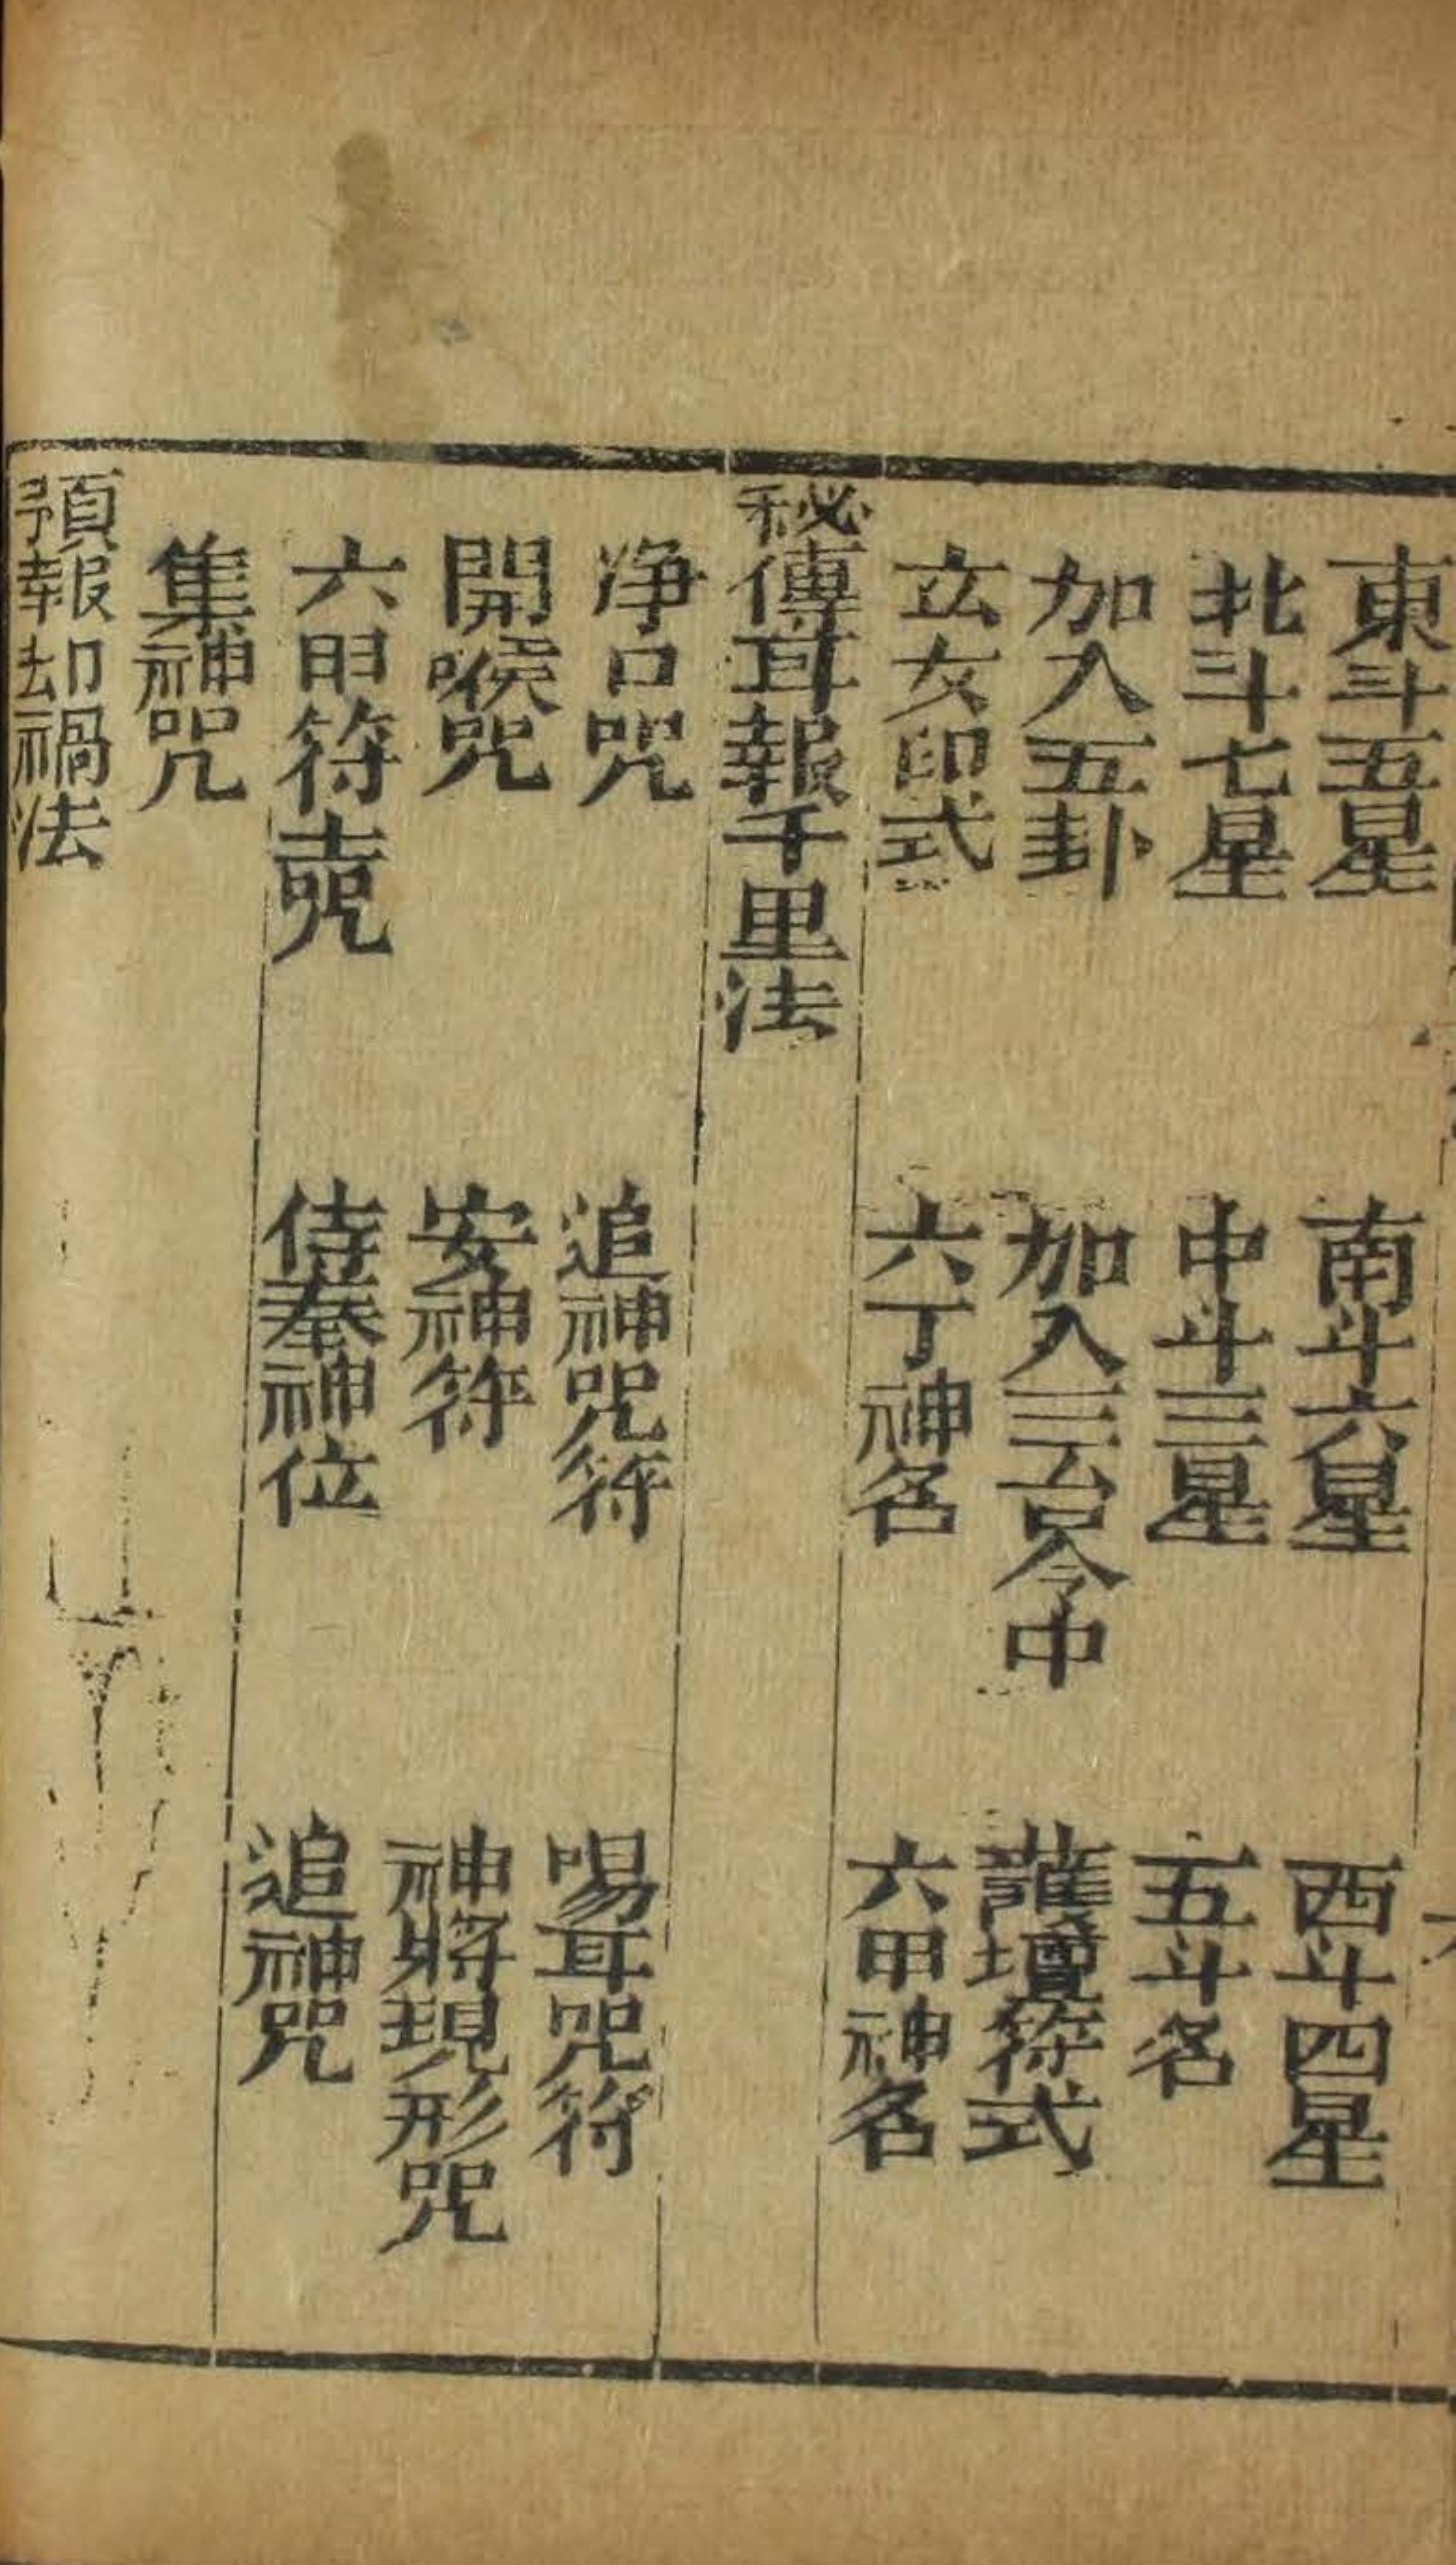 東斗五星　南斗六星　西斗四星
北斗七星　中斗三星　五斗名
加入五卦　加入三台令中　護壇符式
玄女印式　六丁神名　六甲神名
秘傳耳報千里法
净口咒　追神咒符　喝耳咒符
開喉咒　安神符　神將現形咒
六甲符咒　侍奉神位　追神咒
集神咒
預報却禍法